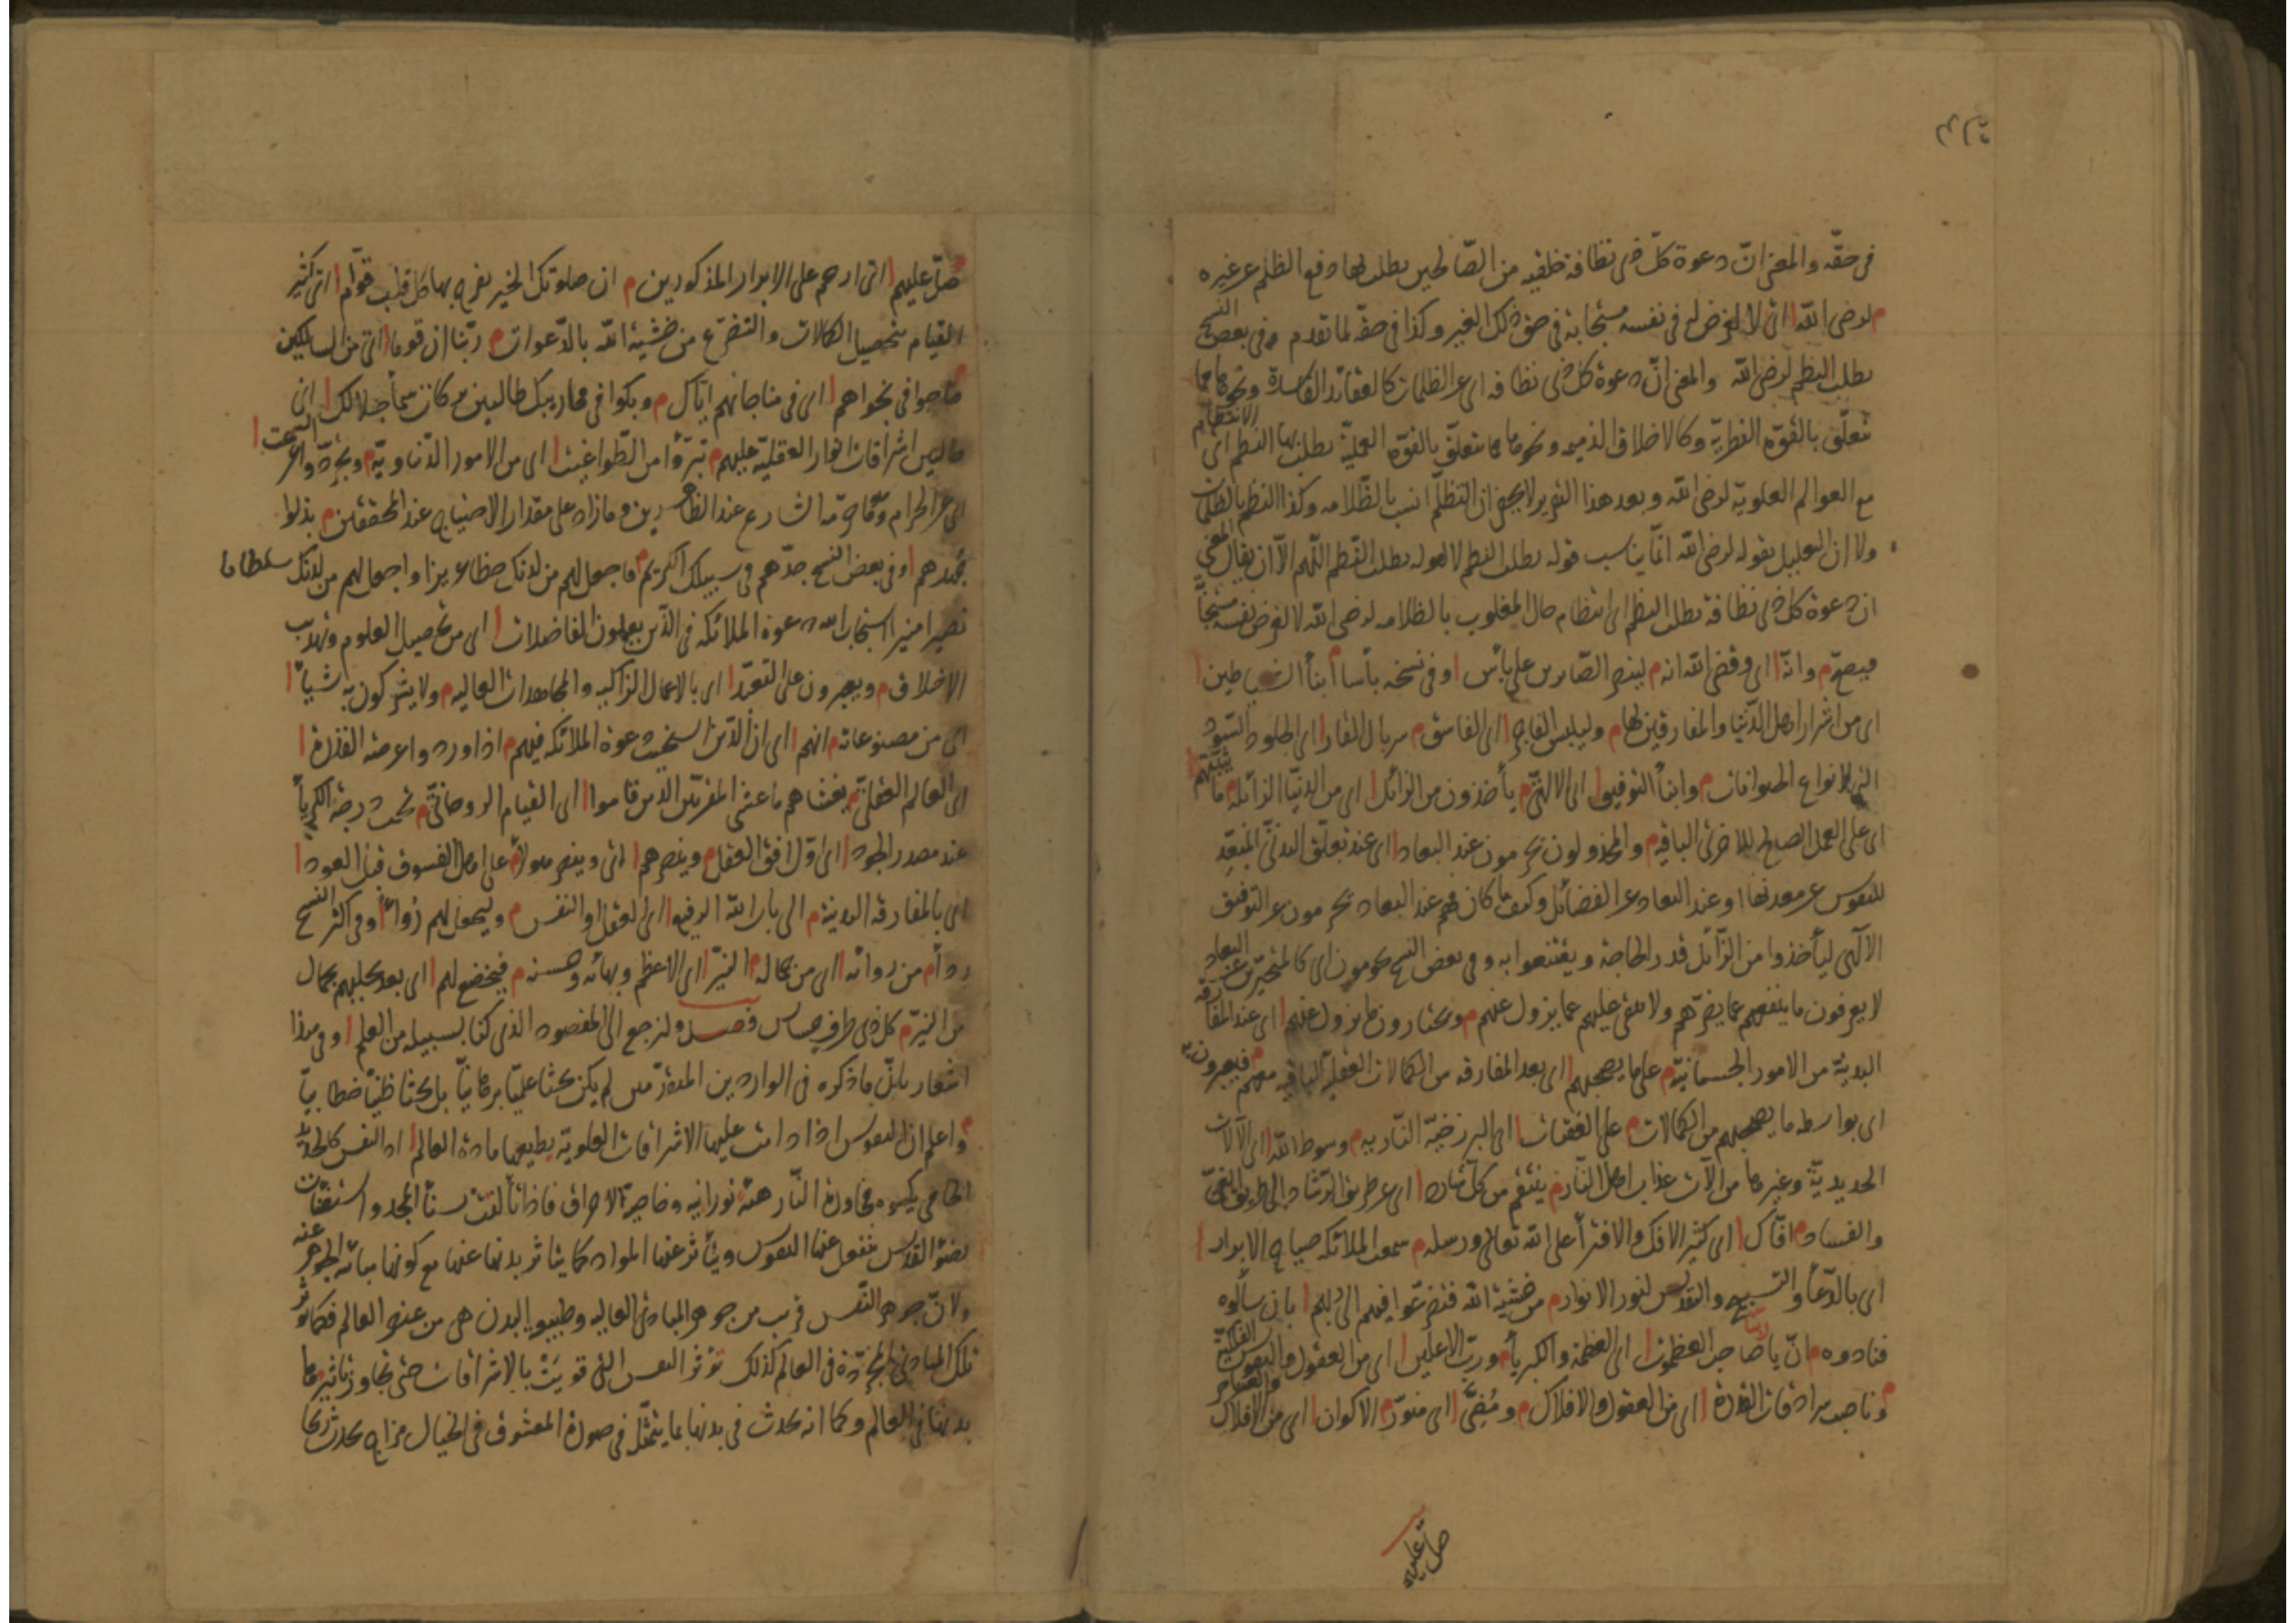 فى حقّه والمعنى انّ دعوة كلّ ذى نظافة خلقيه من الصّالحين يطلب بها دفع الظلم عن غيره
لرضى الله اى لا لغرض له فى نفسه مستجابة فى حق ذلك الغير وكذا فى حقّه لما تقدم وفى بعض النسخ
يطلب النظم لرضى الله والمعنى انّ دعوة كل ذى نظافه اى عن الظلمات كالعقائد الفاسدة ونحوها مما
تتعلّق بالقوّه النظريّة وكالاخلاق الذميمه ونحوها مما يتعلّق بالقوّه العمليّة يطلب بها النظم اى الانتظام
مع العوالم العلويّة لرضى الله وبعد هذا التقرير لا يخفى ان التظلّم انسب بالظّلامه وكذا النظم بالظلمات
ولا ان التعليل بقوله لرضى الله انّما يناسب قوله يطلب النظم لا لقوله يطلب التظلم اللّهم الّا ان يقال المعنى
ان دعوة كل ذى نظافة يطلب النظم اى انتظام حال المغلوب بالظلامه لرضى الله لا لغرض نفسه مستجابة
فيصحّ م وانّه اى وقضى الله انه م لينصر الصّابرين على بأس وفى نسخه بأساء ابناء الشياطين
اى من اشرار اهل الدّنيا والمفارقين لها م وليلبس الفاجر اى الفاسق م سربال القار اى الجلود السّود
التى لانواع الحيوانات م وابناء التوفيق اى الالهىّ م يأخذون من الزائل اى من الدنيا الزائله م ما يثبّتهم
اى على العمل الصالح للاخرى الباقيه م والمخذولون يحرمون عند البعاد اى عند تعلّق البدنىّ المبعّد
للنفوس عن معدنها او عند البعاد عن الفضائل وكيف ما كان فهم عند البعاد يحرمون عن التوفيق
الآلهى ليأخذوا من الزّائل قدر الحاجة ويقتنعوا به وفى بعض النسخ يحومون اى كالمتحيّرين عند البعاد
لا يعرفون ما ينفعهم عمّا يضرّهم ولا يبقى عليهم عمّا يزول عنهم م ويختارون ما يزول عنهم اى عند المفارقة
البدنيّة من الامور الجسمانيّة م على ما يصحبهم اى بعد المفارقه من الكمالات العقليّة الباقيه معهم م فيعبرون به
اى بواسطه ما يصحبهم من الكمالات م على العقبات اى البرزخيّة النّاريه م وسوط الله اى الآلات
الحديديّة وغيرها من الآت عذاب اهل النّار م ينتقم من كل شارد اى عن طريق الرّشاد الى طريق الغىّ
والفساد م افّاك اى كثير الافك والافتراء على الله تعالى ورسله م سمعت الملائكه صياح الابرار
اى بالدّعاء والتسبيح والتقديس لنور الانوار م من خشية الله فتضرّعوا فيهم الى ربّهم بان سألوه
فنادوه م ان يا ربّنا صاحب العظموت اى العظمة والكبرياء م وربّ الاعلين اى من العقول والنفوس الفلكيّة
وناصب سرادقات القدرة اى من العقول والافلاك م ومُضىّ اى منوّر م الاكوان اى من الافلاك والعناصر
صل عليهم
صلّ عليهم اى ارحم على الابرار المذكورين م ان صلوتك الخير يفرح بها كل قلب قوّام اى كثير
القيام بتحصيل الكمالات والتضرّع من خشية الله بالدّعوات م ربّنا ان قوما اى من السالكين
ناجوا فى نجواهم اى فى مناجاتهم ايّاك م وبكوا فى محاريبك طالبين بركات سماء جلالك اى
طالبين اشراقات انوار العقليّه عليهم م تبرّؤا من الطّواغيت اى من الامور الدّنياويّة م وتجرّدوا عن السحت
اى عن الحرام وممّا حرّمه الشارع عند الظاهريين وما زاد على مقدار الاحتياج عند المحققين م بذلوا
جهدهم وفى بعض النسخ جدّهم فى سبيلك الكريم م فاجعل لهم من لدنك حظا عزيزا واجعل لهم من لدنك سلطانا
نصيرا منيرا استجاب الله دعوة الملائكه فى الذين يعملون الفاضلات اى من تحصيل العلوم وتهذيب
الاخلاق م ويصبرون على التعبّد اى بالاعمال الزاكيه والمجاهدات العاليه م ولا يشركون به شيأ
اى من مصنوعاته م انهم اى ان الّذين استجيبت دعوة الملائكه فيهم م اذا وردوا عرصة القدرة
اى العالم العقلىّ م يغشاهم ما غشى المقربين الذين قاموا اى القيام الروحانىّ م تحت درجة الكبرياء
عند مصدر الجود اى اوّل افق العقل م وينصرهم اى وينصر هولاء م على اهل الفسوق قبل العود
اى بالمفارقه البدنية م الى باب الله الرفيع اى العقل او النفس م وليجعل لهم رُواء وفى اكثر النسخ
رداء م من روائه اى من جماله م النيّر اى الاعظم وبهائه وحسنه م فيخضع لهم اى بعد تحلّيهم بجمال
من النيّر م كل ذى طرف حساس فصل ولنرجع الى المقصود الذى كنا بسبيله من العلم وفى هذا
اشعار بانّ ما ذكره فى الواردين المتقدّمين لم يكن بحثا علميّا برهانيّا بل بحثا ظنيّا خطابيّا
واعلم ان النفوس اذا دامت عليها الاشراقات العلويّة يطيعها مادة العالم اذ النفس كالحديدة
الحامى يكسوه مجاورة النّار هيئة نورانيه وخاصية الاحراق فاذا تألّقت بسنا المجد واستضاءت
بضوء القدس ينفعل عنها النفوس ويتأثر عنها المواد كما يتاثر بدنها عنها مع كونها مباينة الجوهر عنه
ولانّ جوهر النّفس قريب من جوهر المبادى العاليه وطبيعة البدن هى من عنصر العالم فكما تؤثر
تلك المبادى المجرّدة فى العالم كذلك تؤثر النفس التى قويَتْ بالاشراقات حتى تجاوز تأثيرها
بدنها فى العالم وكما انه يحدث فى بدنها بما يتمثّل فى صورة المعشوق فى الخيال مزاج يحدث ريحا